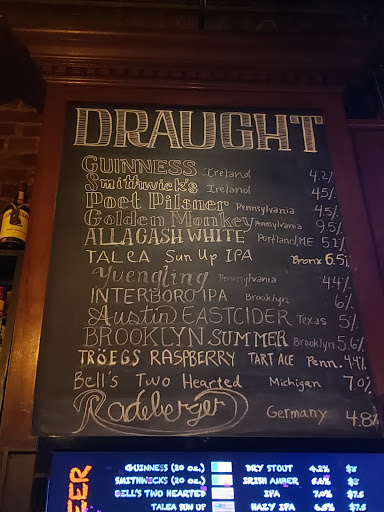 DRAUGHT
GUINNESS Ireland 4.2%
Smithwick's Ireland 4.5%
Poet Pilsner Pennsylvania 4.5%
Golden Monkey Pennsylvania 9.5%
ALLAGASH WHITE Portland, ME 5.2%
TALEA Sun Up IPA Bronx 6.5%
Yuengling Pennsylvania 4.4%
INTERBORO IPA Brooklyn 6%
Austin EASTCIDER Texas 5%
BROOKLYN SUMMER Brooklyn 5.6%
TRÖEGS RASPBERRY TART ALE Penn. 4.4%
Bell's Two Hearted Michigan 7.0%
Radeberger Germany 4.8%
BEER
GUINNESS (20 OZ.) DRY STOUT 4.2% $8
SMITHWICKS (20 OZ.) IRISH AMBER $8
BELL'S TWO HEARTED IPA 7.0% $7.5
TALEA SUN UP HAZY IPA 6.5% $7.5